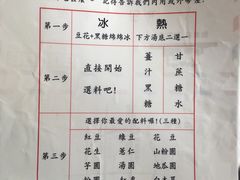 記得告訴我們內用或外帶喔!
第一步
冰
熱
豆花+黑糖綿綿冰
下方湯底二選一
第二步
直接開始
選料吧!
薑汁黑糖
甘蔗糖水
選擇你最愛的配料喔!(三種)
第三步
紅豆 綠豆 花豆
花生 薏仁 山粉圓
芋圓 湯圓 地瓜圓
粉圓